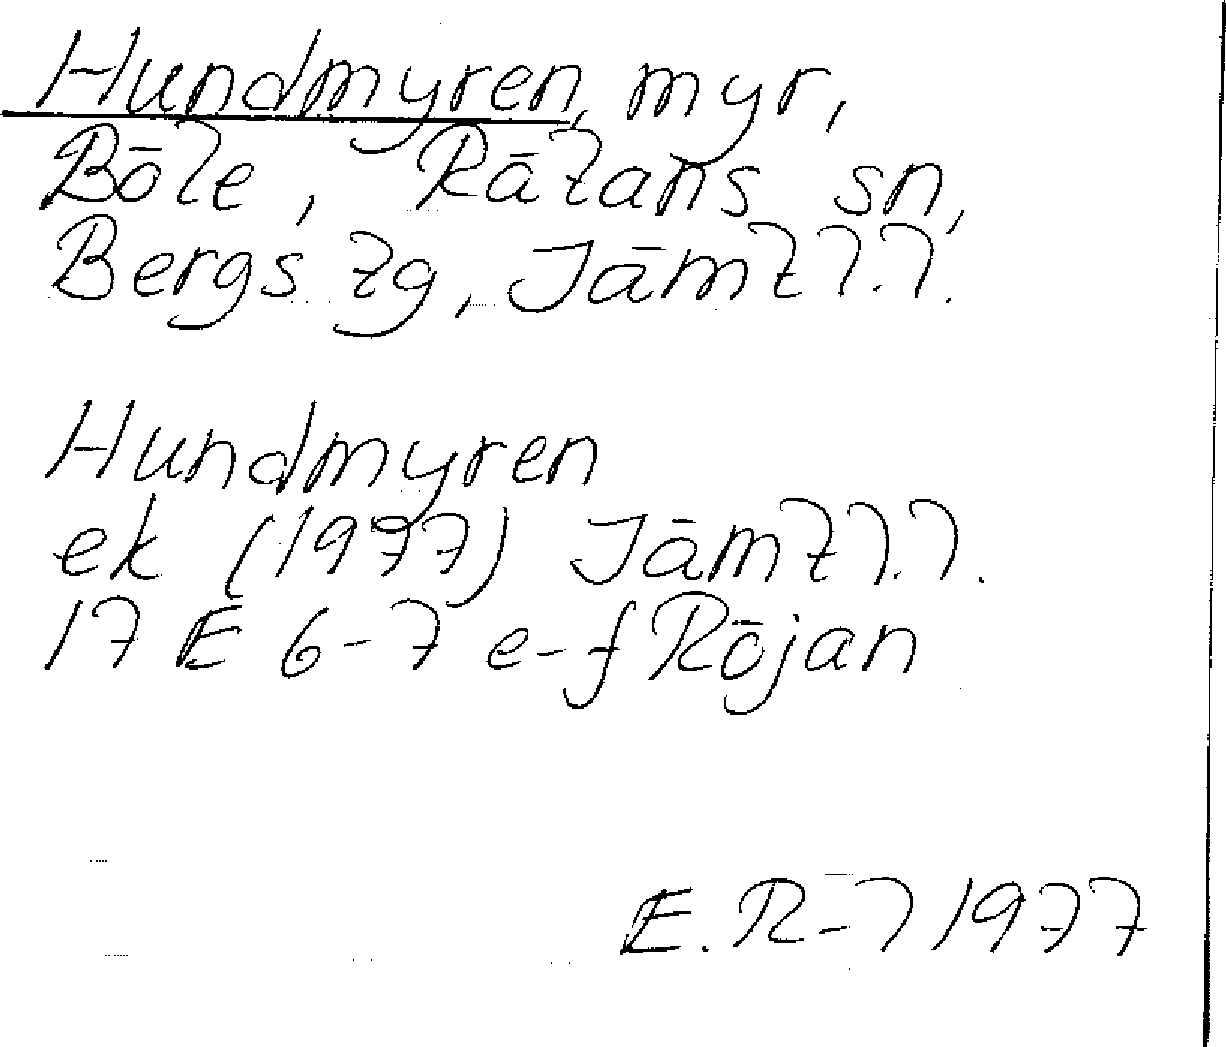 Hundmyren, myr,
Böle, Rätans sn,
Bergs tg, Jämtl.
Hundmyren
ek (1977) Jämtl.
17 E 6-7 e-f Röjan
E. R-n 1977